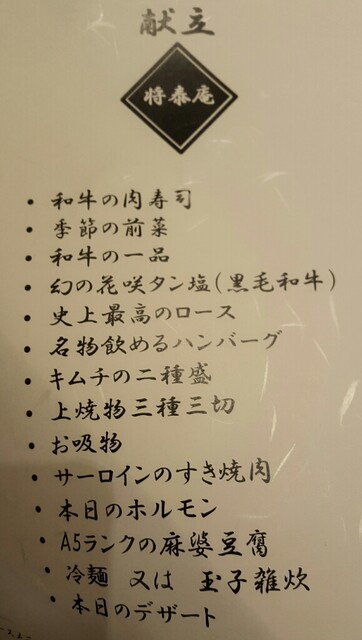 献立
将泰庵
• 和牛の肉寿司
• 季節の前菜
• 和牛の一品
• 幻の花咲タン塩(黒毛和牛)
• 史上最高のロース
• 名物飲めるハンバーグ
• キムチの二種盛
• 上焼物三種三切
• お吸物
• サーロインのすき焼肉
• 本日のホルモン
• A5ランクの麻婆豆腐
• 冷麺 又は 玉子雑炊
• 本日のデザート